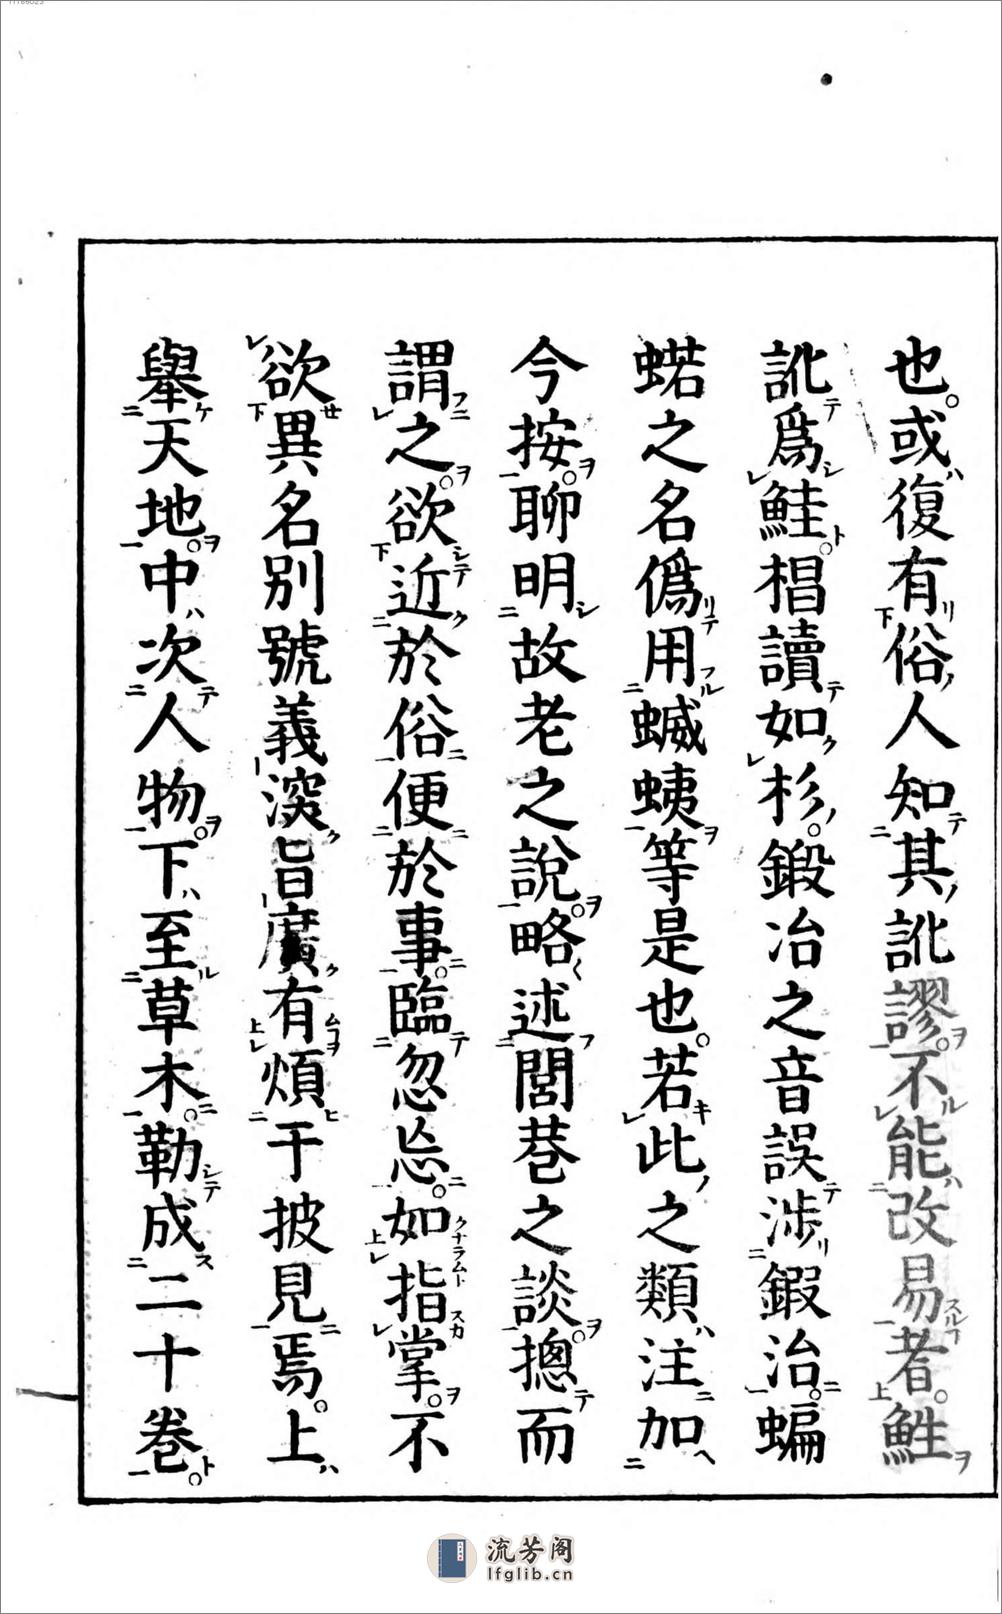 也。或復有俗人知其訛謬。不能改易者。鮏
訛爲鮭。椙讀如杉。鍛冶之音誤涉鍜治。蝙
蠕之名僞用𧌒蛦等是也。若此之類注加
今按。聊明故老之說。略述閭巷之談。摠而
謂之。欲近於俗便於事。臨忽忘。如指掌。不
欲異名別號義深旨廣有煩于披見焉。上
舉天地。中次人物。下至草木。勒成二十卷。
流芳阁
lfglib.cn